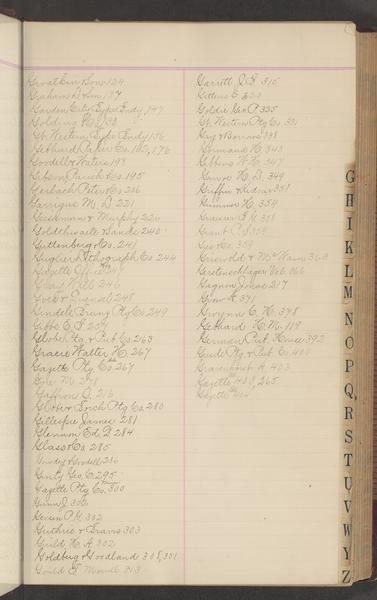 Grahams & Son 137
Garden City Type Fndy, 147
Golding & Co 153
Gt. Western Type Fndy 156
Gebhard Paper Co. 162, 176
Goodell & Waters 193
Gibson Parish & Co. 195
Gerlach Peter & Co 206
Garrigue M. D 221
Geeshman & Murphy 226
Goldthwaite & Sands 240
Guttenberg & Co. 241
Gugler Lithograph Co 244
Gazette Office
Gray Will 246
248
Gindele Prang Ptg Co 249
Gibbs E. P 257
Globe Ptg. & Pub Co. 263
Gracie Walter H. 267
Gazette Ptg. Co 267
Gaffron O. 216
Glober & Inch Ptg Co. 280
Gillespie James 281
Glennon Ed. D 284
Glass & Co. 285
Goodell 286
Gentz Geo. C 295
Gazette Ptg Co 300
Gunn J. 302
302
Guthrie & Travis 303
Guild H. A 302
Goldberg & Goodland 308, 301
Gould E. 313
Garrett J. E 315
Gittens E. 320
Goldie Geo P. 335
Gt. Western Ptg Co. 331
Gay & Barrows 338
Gormand H. 343
Gibbons W. H. 347
Garve H. D. 349
Griffin & Kidner 351
Gumms H. 354
358
Grant P S 359
Geo Co. 359
Griswold & McWain 360
Geretenschlager Val. 366
Gagnon Jonas 217
Grow A. 371
Gwynn C. H. 378
Gebhard H. M. 119
German Pub. House 392
Guide Ptg. & Pub Co. 400
Gravenhorst A 403
Gazette 403, 265
Gazette 404
G
H
I
K
L
M
N
O
P
Q
R
S
T
U
V
W
Y
Z